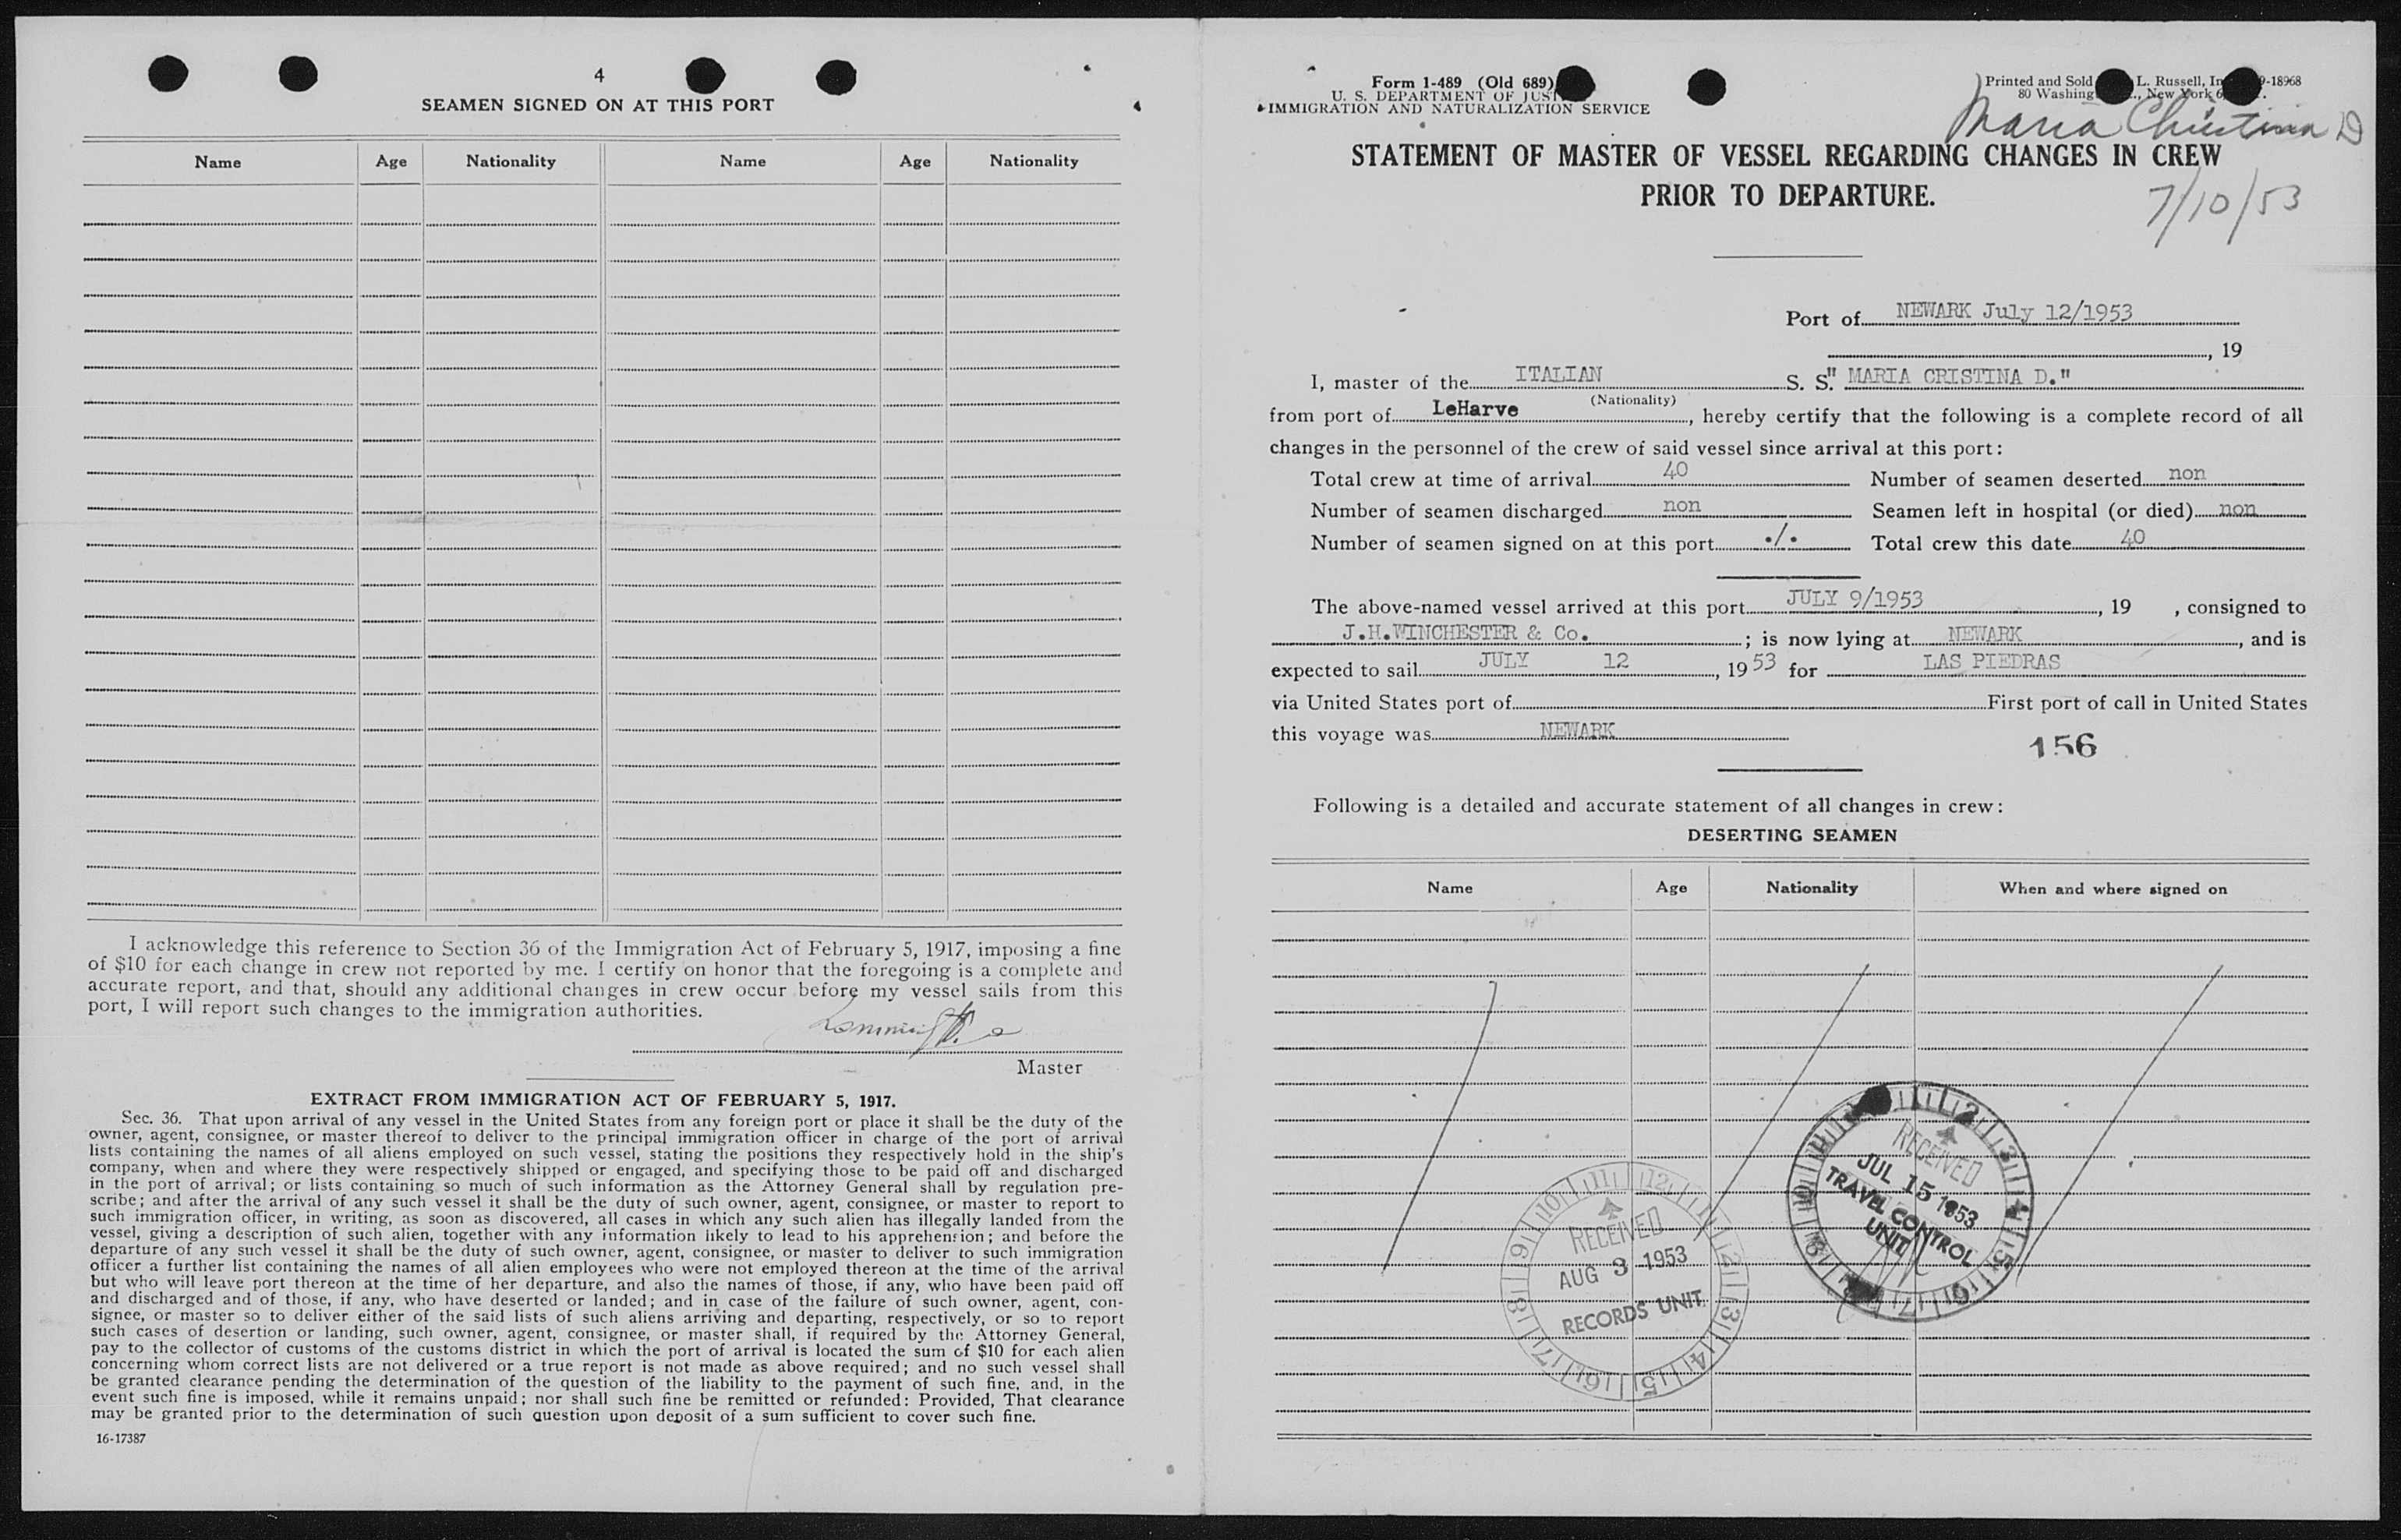 4
SEAMEN SIGNED ON AT THIS PORT
Name Age Nationality Name Age Nationality
I acknowledge this reference to Section 36 of the Immigration Act of February 5, 1917, imposing a fine
of $10 for each change in crew not reported by me. I certify on honor that the foregoing is a complete and
accurate report, and that, should any additional changes in crew occur before my vessel sails from this
port, I will report such changes to the immigration authorities.
Master
EXTRACT FROM IMMIGRATION ACT OF FEBRUARY 5, 1917.
Sec. 36. That upon arrival of any vessel in the United States from any foreign port or place it shall be the duty of the
owner, agent, consignee, or master thereof to deliver to the principal immigration officer in charge of the port of arrival
lists containing the names of all aliens employed on such vessel, stating the positions they respectively hold in the ship's
company, when and where they were respectively shipped or engaged, and specifying those to be paid off and discharged
in the port of arrival; or lists containing so much of such information as the Attorney General shall by regulation pre-
scribe; and after the arrival of any such vessel it shall be the duty of such owner, agent, consignee, or master to report to
such immigration officer, in writing, as soon as discovered, all cases in which any such alien has illegally landed from the
vessel, giving a description of such alien, together with any information likely to lead to his apprehension; and before the
departure of any such vessel it shall be the duty of such owner, agent, consignee, or master to deliver to such immigration
officer a further list containing the names of all alien employees who were not employed thereon at the time of the arrival
but who will leave port thereon at the time of her departure, and also the names of those, if any, who have been paid off
and discharged and of those, if any, who have deserted or landed; and in case of the failure of such owner, agent, con-
signee, or master so to deliver either of the said lists of such aliens arriving and departing, respectively, or so to report
such cases of desertion or landing, such owner, agent, consignee, or master shall, if required by the Attorney General,
pay to the collector of customs of the customs district in which the port of arrival is located the sum of $10 for each alien
concerning whom correct lists are not delivered or a true report is not made as above required; and no such vessel shall
be granted clearance pending the determination of the question of the liability to the payment of such fine, and, in the
event such fine is imposed, while it remains unpaid; nor shall such fine be remitted or refunded: Provided, That clearance
may be granted prior to the determination of such question upon deposit of a sum sufficient to cover such fine.
16-17387
Form 1-489 (Old 689)
U. S. DEPARTMENT OF JUST
IMMIGRATION AND NATURALIZATION SERVICE
Printed and Sold L. Russell, In -18968
80 Washing ., New York 6
Maria Christina D
STATEMENT OF MASTER OF VESSEL REGARDING CHANGES IN CREW
PRIOR TO DEPARTURE.
7/10/53
Port of NEWARK July 12/1953
, 19
I, master of the ITALIAN S. S." MARIA CRISTINA D."
(Nationality)
from port of LeHarve, hereby certify that the following is a complete record of all
changes in the personnel of the crew of said vessel since arrival at this port:
Total crew at time of arrival 40 Number of seamen deserted non
Number of seamen discharged non Seamen left in hospital (or died) non
Number of seamen signed on at this port ./. Total crew this date 40
The above-named vessel arrived at this port JULY 9/1953, 19 , consigned to
J.H.WINCHESTER & Co. ; is now lying at NEWARK, and is
expected to sail JULY 12, 1953 for LAS PIEDRAS
via United States port of First port of call in United States
this voyage was NEWARK
156
Following is a detailed and accurate statement of all changes in crew:
DESERTING SEAMEN
Name Age Nationality When and where signed on
RECEIVED
JUL 15 1953
TRAVEL CONTROL
UNIT
RECEIVED
AUG 3 1953
RECORDS UNIT